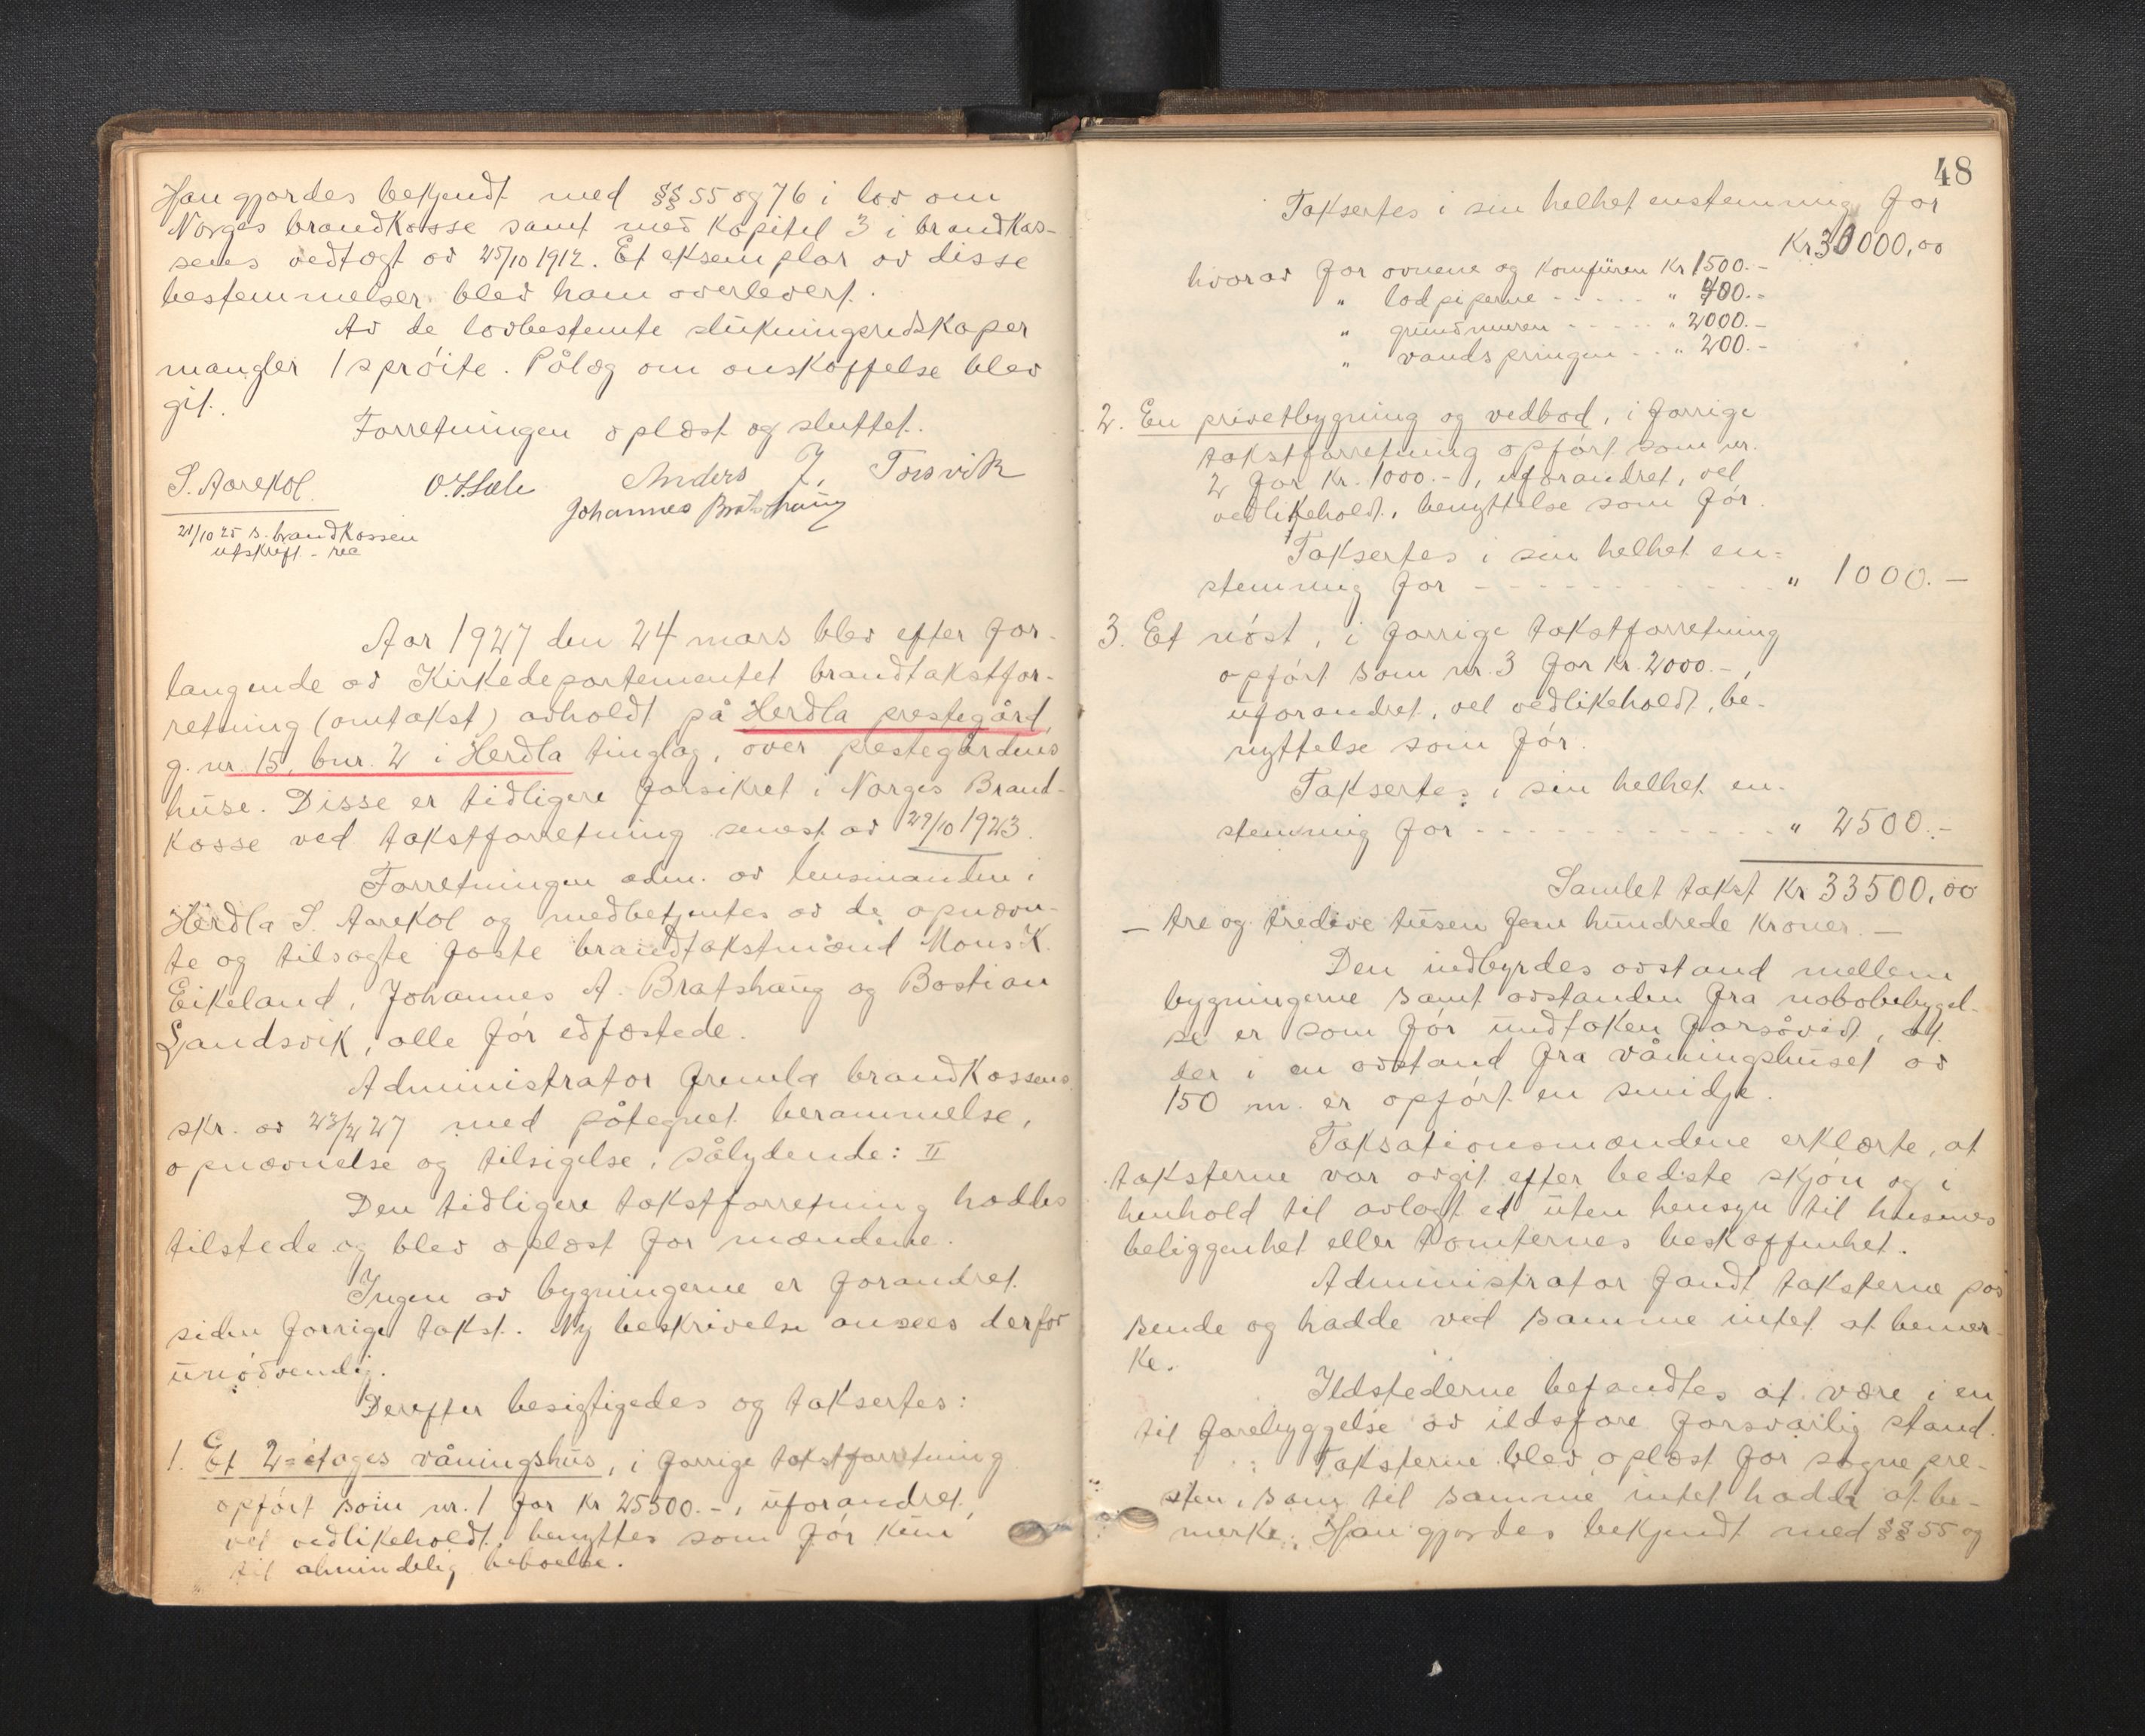 Han gjordes bekjendt med §§ 55 og 76 i lov om
Norges brandkasse samt med kapitel 3 i brandkas-
sens vedtægt av 25/10 1912. Et eksemplar av disse
bestemmelser blev ham overlevert.
Av de lovbestemte slukningsredskaper
mangler 1 sprøite. Pålæg om anskaffelse blev
git.
Forretningen oplæst og sluttet.
S. Aarekol. Anders J. Torsvik
Johannes Bratshaug
21/10 25 s. brandkassen
utskrift - rec
Aar 1927 den 24 mars blev efter for-
langende av Kirkedepartementet brandtakstfor-
retning (omtakst) avholdt på Herdla prestegård,
g. nr. 15, bnr. 2 i Herdla tinglag, over prestegårdens
huse. Disse er tidligere forsikret i Norges Brand-
kasse ved takstforretning senest av 29/10 1923.
Forretningen adm. av lensmanden i
Herdla S. Aarekol og medbetjentes av de opnævn-
te og tilsagte faste brandtakstmænd Mons K.
Eikeland, Johannes A. Bratshaug og Bastian
Landsvik, alle før edfæstede.
Administrator fremla brandkassens
skr. av 23/2 27 med påtegnet berammelse,
opnævnelse og tilsigelse, sålydende: II
Den tidligere takstforretning haddes
tilstede og blev oplæst for mændene.
Ingen av bygningerne er forandret
siden forrige takst. Ny beskrivelse ansees derfor
unødvendig.
Derefter besigtigedes og taksertes:
1. Et 2-etages våningshus, i forrige takstforretning
opført som nr. 1 for kr 25500.-, uforandret,
vel vedlikeholdt, benyttes som før kun
til almindelig beboelse.
48
Taksertes i sin helhet enstemmig for
Kr 30000,00
hvorav for ovnene og komfuren Kr 1500.-
" lodpiperne - - - - - " 700.-
" grundmuren - - - - - " 2000.-
" vandspringen - - " 200.-
2. En privetbygning og vedbod, i forrige
takstforretning opført som nr.
2 for kr. 1000.-, uforandret, vel
vedlikeholdt, benyttelse som før.
Taksertes i sin helhet en-
stemmig for - - - - - - - - - - - " 1000.-
3. Et nøst, i forrige takstforretning
opført som nr. 3 for kr. 2000.-,
uforandret, vel vedlikeholdt, be-
nyttelse som før.
Taksertes i sin helhet en-
stemmig for - - - - - - - - - - - " 2500.-
Samlet takst Kr 33500,00
- tre og tredive tusen fem hundrede kroner. -
Den indbyrdes avstand mellem
bygningerne samt avstanden fra nabobebygel-
se er som før undtaken forsåvidt, at
der i en avstand fra våningshuset av
150 m. er opført en smidje.
Taksationsmændene erklærte, at
taksterne var avgit efter bedste skjøn og i
henhold til avlagt ed uten hensyn til husenes
beliggenhet eller tomternes beskaffenhet.
Administrator fandt taksterne pas
sende og hadde ved samme intet at bemer-
ke.
Ildstederne befandtes at være i en
til forebyggelse av ildsfare forsvarlig stand.
Taksterne blev oplæst for sognepre-
sten, som til samme intet hadde at be-
merke. Han gjordes bekjendt med §§ 55 og